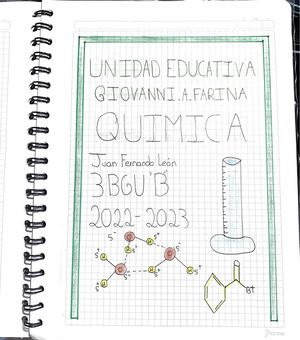 UNIDAD EDUCATIVA
GIOVANNI.A.FARINA
QUIMICA
Juan Fernando León
3BGU'B'
2022-2023